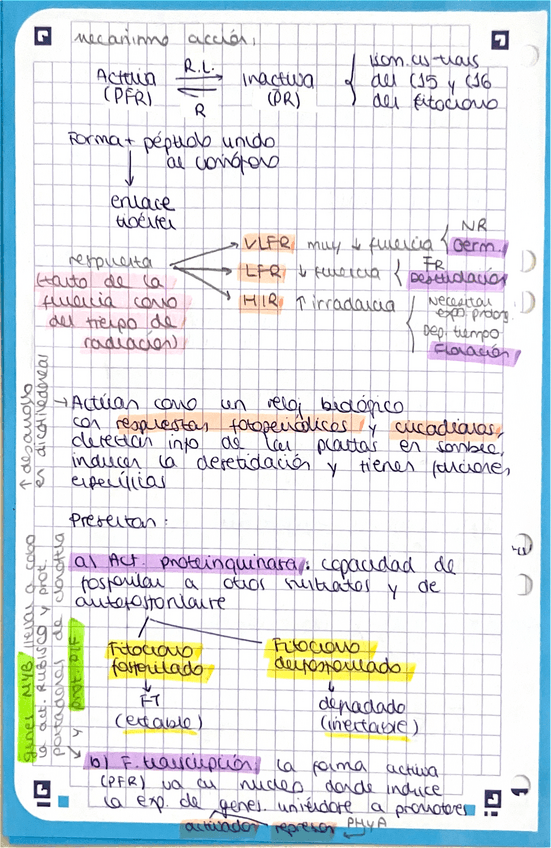 Mecanismo acción:
Activa (PFR)
R.L.
R
Inactiva (PR)
isom. cis-trans
del C15 y C16
del fitocromo
Forma + péptido unido
al cromóforo
enlace
tioéster
respuesta
(tanto de la
fluencia como
del tiempo de
radiación)
VLFR muy ↓ fluencia
NR
Germ.
LFR ↓ fluencia
FR
Desetiolación
HIR ↑ irradancia
Necesitan
expo prolong.
Dep. tiempo
Floración
→ Actúan como un reloj biológico
con respuestas fotoperiódicas y circadianas,
detectan info de las plantas en sombra,
inducen la desetiolación y tienen funciones
específicas
↑ desarrollo
en dicotiledóneas
Presentan:
a) Act. proteinquinasa: capacidad de
fosforilar a otros sustratos y de
autofosforilarse
Fitocromo
fosforilado
FT
(estable)
Fitocromo
desfosforilado
degradado
(inestable)
genes MYB llevar a cabo
la act. RUBISCO y prot.
portadoras de clorofila
y prot. PIF
b) F. transcripción: la forma activa
(PFR) va al núcleo donde induce
la exp. de genes uniéndose a promotores
activador represor PHYA
1